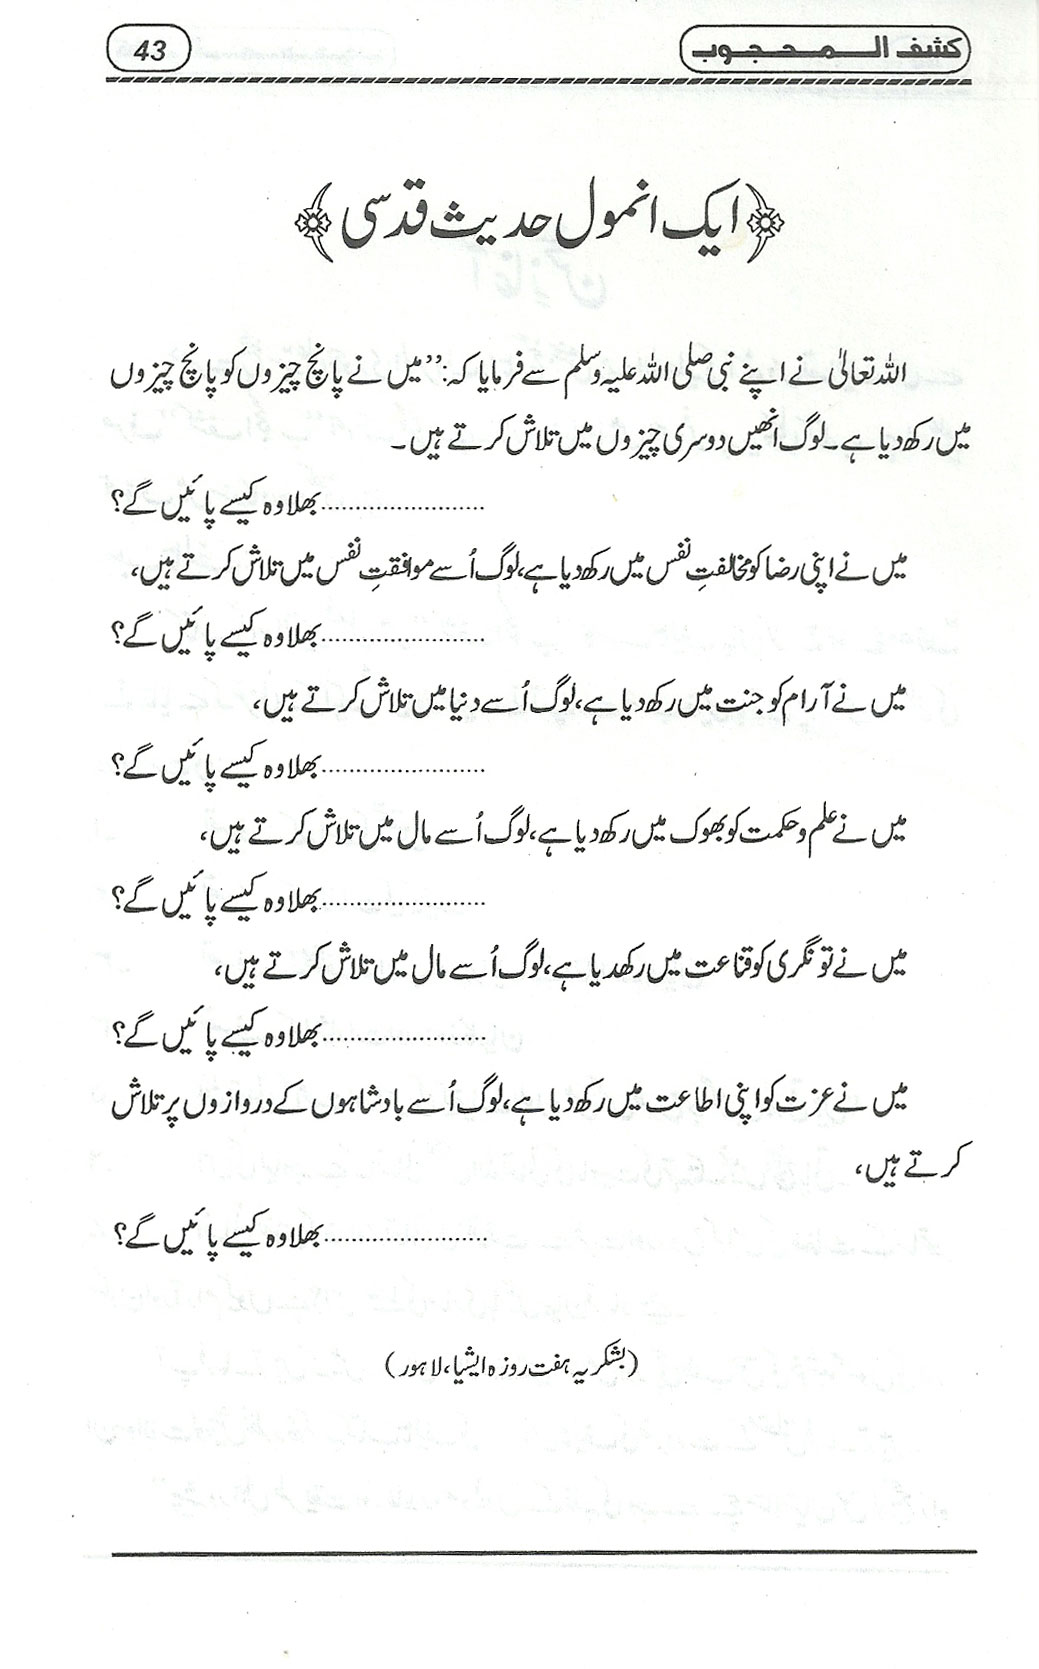 کشف المحجوب
43
ایک انمول حدیث قدسی
اللہ تعالیٰ نے اپنے نبی صلی اللہ علیہ وسلم سے فرمایا کہ: ”میں نے پانچ چیزوں کو پانچ چیزوں
میں رکھ دیا ہے۔ لوگ انھیں دوسری چیزوں میں تلاش کرتے ہیں۔
........................بھلا وہ کیسے پائیں گے؟
میں نے اپنی رضا کو مخالفتِ نفس میں رکھ دیا ہے، لوگ اُسے موافقتِ نفس میں تلاش کرتے ہیں،
........................بھلا وہ کیسے پائیں گے؟
میں نے آرام کو جنت میں رکھ دیا ہے، لوگ اُسے دنیا میں تلاش کرتے ہیں،
........................بھلا وہ کیسے پائیں گے؟
میں نے علم و حکمت کو بھوک میں رکھ دیا ہے، لوگ اُسے مال میں تلاش کرتے ہیں،
........................بھلا وہ کیسے پائیں گے؟
میں نے تونگری کو قناعت میں رکھدیا ہے، لوگ اُسے مال میں تلاش کرتے ہیں،
........................بھلا وہ کیسے پائیں گے؟
میں نے عزت کو اپنی اطاعت میں رکھ دیا ہے، لوگ اُسے بادشاہوں کے دروازوں پر تلاش
کرتے ہیں،
........................بھلا وہ کیسے پائیں گے؟
(بشکریہ ہفت روزہ ایشیا، لاہور)